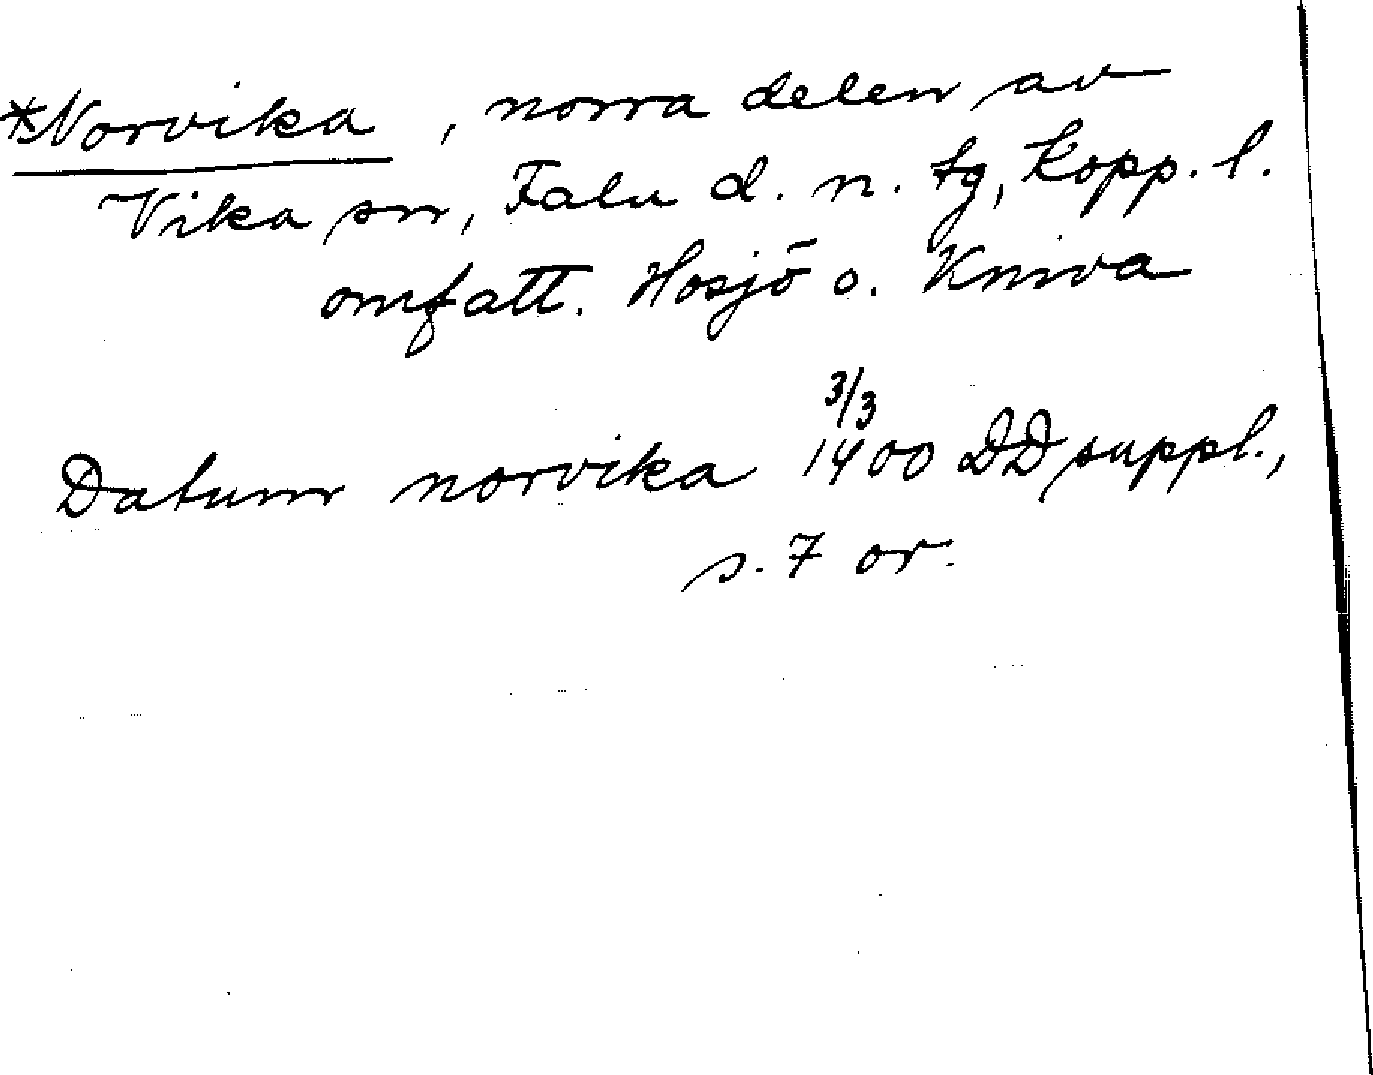 *Norvika, norra delen av
Vika sn, Falu d. n. tg, Kopp. l.
omfatt. Hosjö o. Kniva
Datum norvika 3/3 1400 DD suppl.,
s. 7 or.